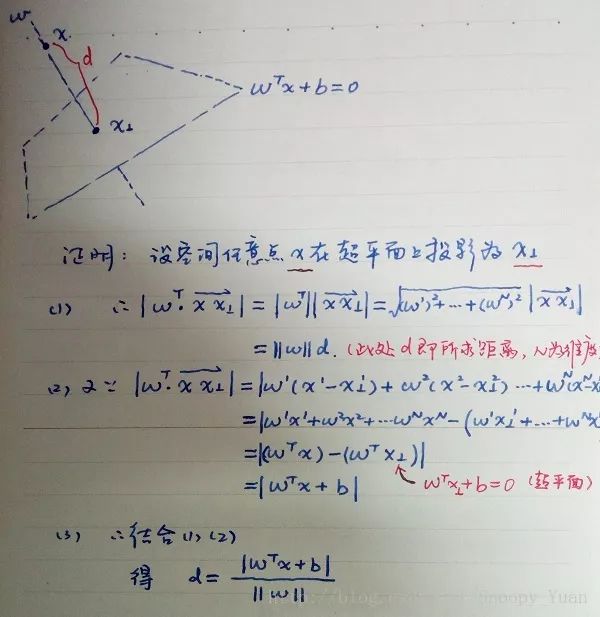 w
x
d
x⊥
wᵀx+b=0
证明：设空间任意点 x 在超平面上投影为 x⊥
(1) ∴|wᵀ·xx⊥|=|wᵀ||xx⊥|=√(w¹)²+…+(wᴺ)² |xx⊥|
=||w||d. (此处 d 即所求距离, N为维度
(2) 又∵ |wᵀ·xx⊥|=|w¹(x¹-x⊥¹)+w²(x²-x⊥²)…+wᴺ(xᴺ-x
=|w¹x¹+w²x²+…wᴺxᴺ-(w¹x⊥¹+…+wᴺx
=|(wᵀx)-(wᵀx⊥)|
=|wᵀx+b| wᵀx⊥+b=0 (超平面)
(3) ∴结合(1)(2)
得 d=|wᵀx+b|/||w||